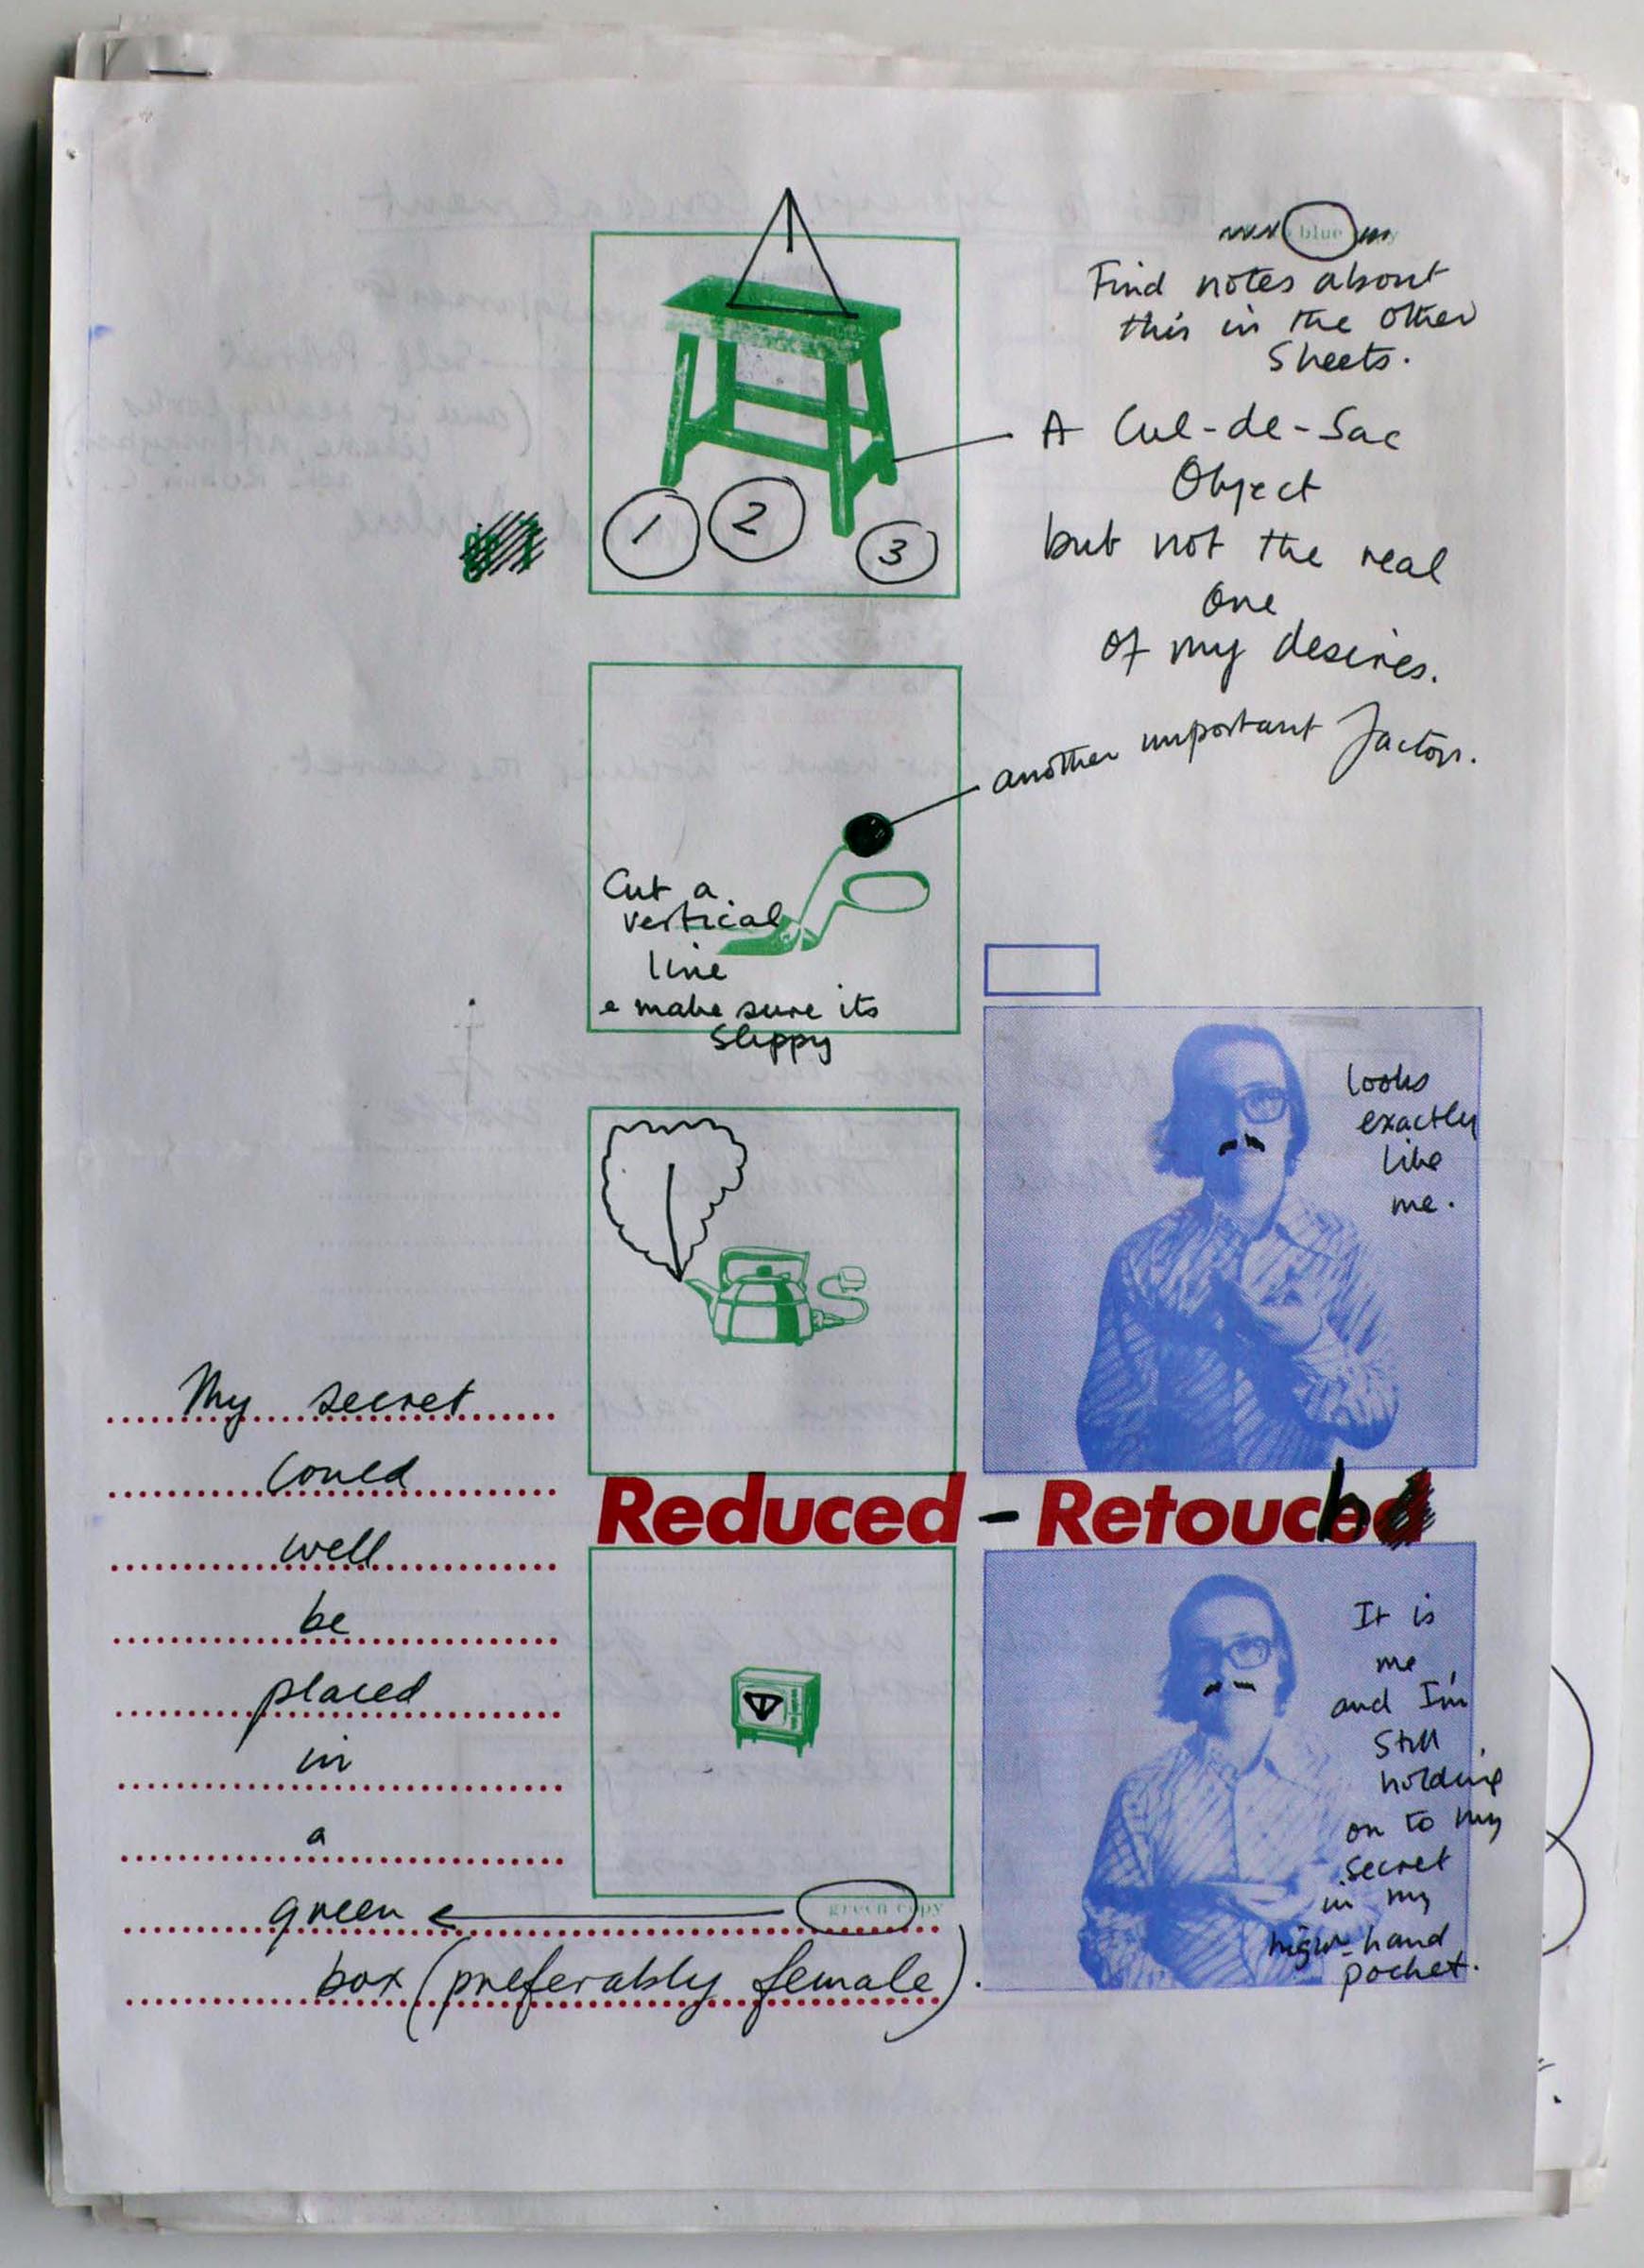 blue
Find notes about
this in the other
Sheets.
A Cul-de-Sac
Object
but not the real
one
of my desires.
1 2 3
another important factor.
Cut a
vertical
line
e make sure its
Slippy
looks
exactly
like
me.
Reduced - Retouch
It is
me
and I'm
still
holding
on to my
secret
in my
right-hand
pocket.
My secret
could
well
be
placed
in
a
green
green copy
box (preferably female).